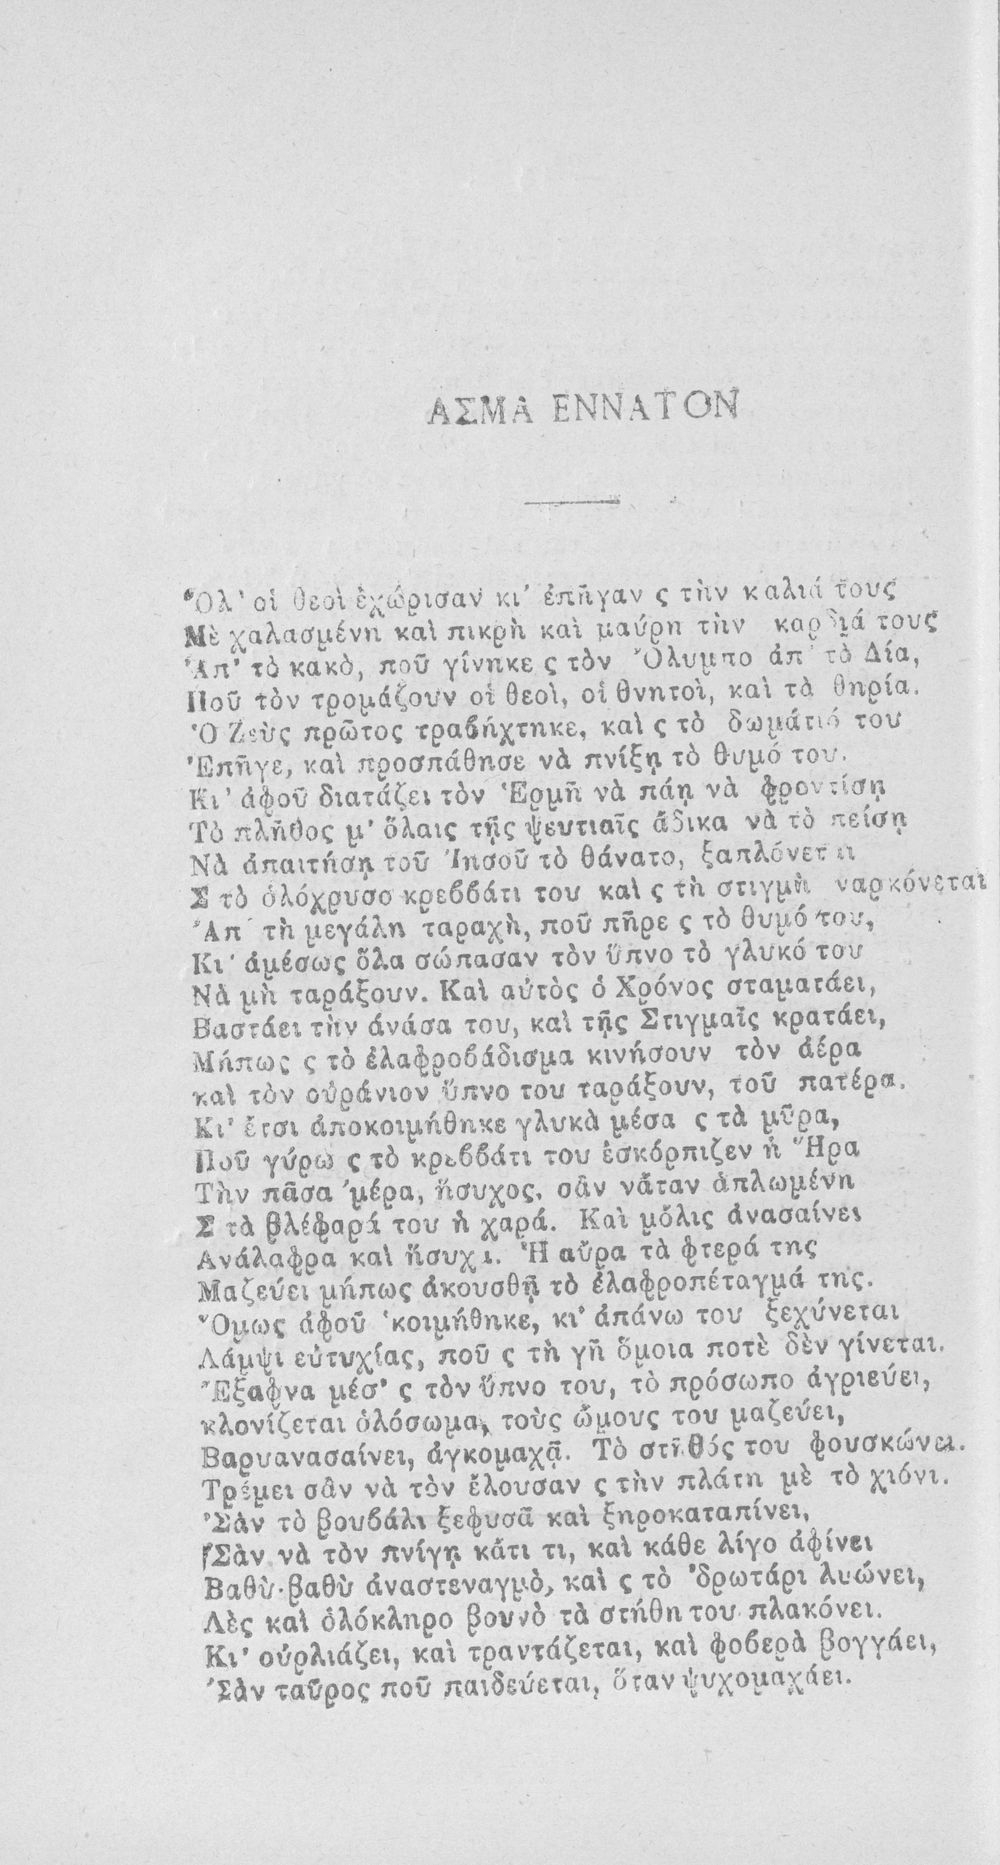 ΑΣΜΑ ΕΝΝΑΤΟΝ
Ὅλ' οἱ θεοὶ ἐχώρισαν κι' ἐπῆγαν ς τὴν καλιά τους
Μὲ χαλασμένη καὶ πικρὴ καὶ μαύρη τὴν καρδιά τους
Ἀπ' τὸ κακὸ, ποῦ γίνηκε ς τὸν Ὄλυμπο ἀπ' τὸ Δία,
Ποῦ τὸν τρομάζουν οἱ θεοὶ, οἱ θνητοὶ, καὶ τὰ θηρία.
Ὁ Ζεὺς πρῶτος τραβήχτηκε, καὶ ς τὸ δωμάτιό του
Ἐπῆγε, καὶ προσπάθησε νὰ πνίξῃ τὸ θυμό του.
Κι' ἀφοῦ διατάζει τὸν Ἑρμῆ νὰ πάῃ νὰ φροντίσῃ
Τὸ πλῆθος μ' ὅλαις τῇς ψευτιαῖς ἄδικα νὰ τὸ πείσῃ
Νὰ ἀπαιτήσῃ τοῦ Ἰησοῦ τὸ θάνατο, ξαπλόνεται
Σ τὸ ὁλόχρυσο κρεββάτι του καὶ ς τὴ στιγμὴ ναρκόνεται
Ἀπ' τὴ μεγάλη ταραχὴ, ποῦ πῆρε ς τὸ θυμό του,
Κι' ἀμέσως ὅλα σώπασαν τὸν ὕπνο τὸ γλυκό του
Νὰ μὴ ταράξουν. Καὶ αὐτὸς ὁ Χρόνος σταματάει,
Βαστάει τὴν ἀνάσα του, καὶ τῇς Στιγμαῖς κρατάει,
Μήπως ς τὸ ἐλαφροβάδισμα κινήσουν τὸν ἀέρα
καὶ τὸν οὐράνιον ὕπνο του ταράξουν, τοῦ πατέρα.
Κι' ἔτσι ἀποκοιμήθηκε γλυκὰ μέσα ς τὰ μῦρα,
Ποῦ γύρω ς τὸ κρεββάτι του ἐσκόρπιζεν ἡ Ἥρα
Τὴν πᾶσα 'μέρα, ἥσυχος, σὰν νἆταν ἁπλωμένη
Σ τὰ βλέφαρά του ἡ χαρά. Καὶ μόλις ἀνασαίνει
Ἀνάλαφρα καὶ ἥσυχα. Ἡ αὔρα τὰ φτερά της
Μαζεύει μήπως ἀκουσθῇ τὸ ἐλαφροπέταγμά της.
Ὅμως ἀφοῦ 'κοιμήθηκε, κι' ἀπάνω του ξεχύνεται
Λάμψι εὐτυχίας, ποῦ ς τὴ γῆ ὅμοια ποτὲ δὲν γίνεται.
Ἔξαφνα μέσ' ς τὸν ὕπνο του, τὸ πρόσωπο ἀγριεύει,
κλονίζεται ὁλόσωμα, τοὺς ὤμους του μαζεύει,
Βαρυανασαίνει, ἀγκομαχᾷ. Τὸ στῆθός του φουσκώνει.
Τρέμει σὰν νὰ τὸν ἔλουσαν ς τὴν πλάτη μὲ τὸ χιόνι.
Σὰν τὸ βουβάλι ξεφυσᾶ καὶ ξηροκαταπίνει,
Σὰν νὰ τὸν πνίγῃ κἄτι τι, καὶ κάθε λίγο ἀφίνει
Βαθὺ-βαθὺ ἀναστεναγμὸ, καὶ ς τὸ 'δρωτάρι λυώνει,
Λὲς καὶ ὁλόκληρο βουνὸ τὰ στήθη του πλακόνει.
Κι' οὐρλιάζει, καὶ τραντάζεται, καὶ φοβερὰ βογγάει,
Σὰν ταῦρος ποῦ παιδεύεται, ὅταν ψυχομαχάει.